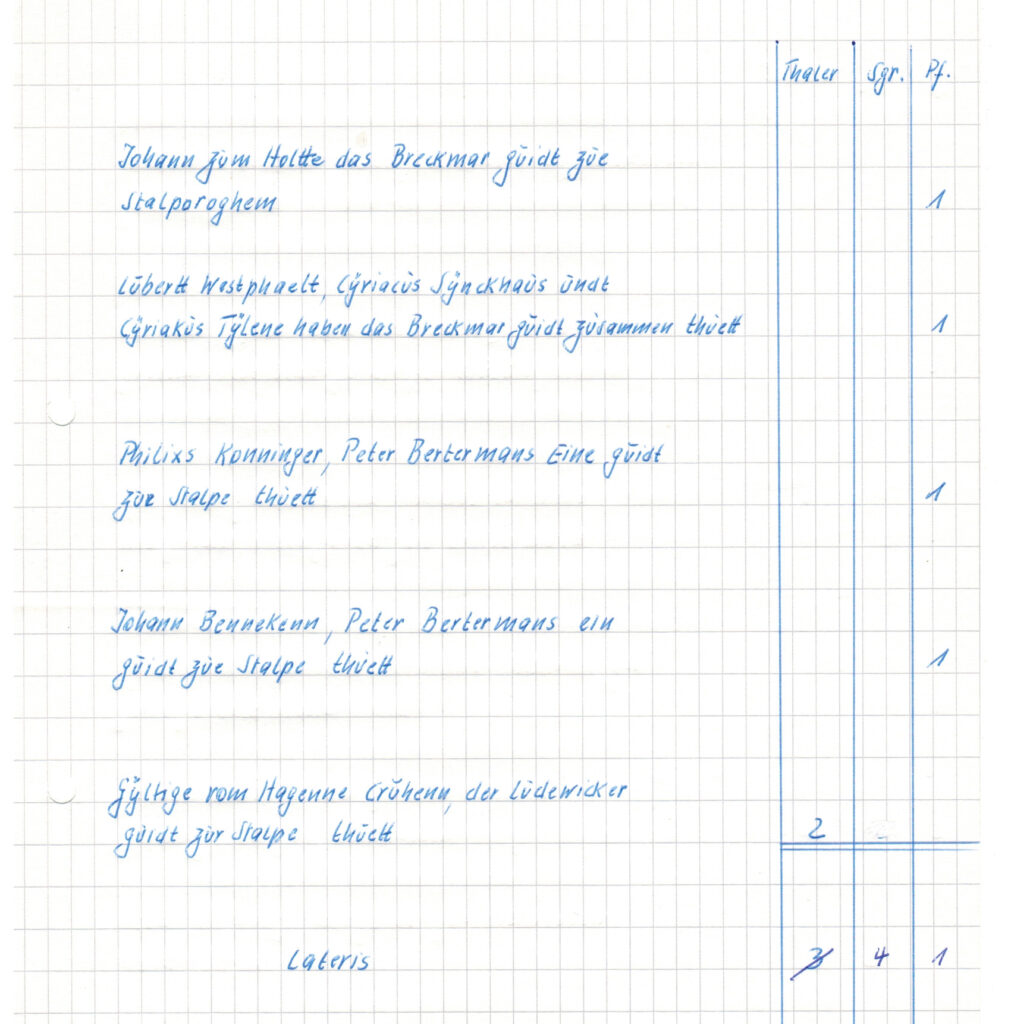 Thaler Sgr. Pf.
Johann zum Holtte das Breckmar guidt zue
Stalporoghem 1
Lubertt Westphaelt, Cÿriacus Sÿnckhaus undt
Cÿriakus Tÿlene haben das Breckmar guidt zusammen thuett 1
Philixs Konninger, Peter Bertermans Eine guidt
zur Stalpe thuett 1
Johann Bennekenn, Peter Bertermans ein
guidt zue Stalpe thuett 1
vom Hagenne Cruhenn, der Ludewicker
guidt zur Stalpe thuett 2
Lateris 3 4 1